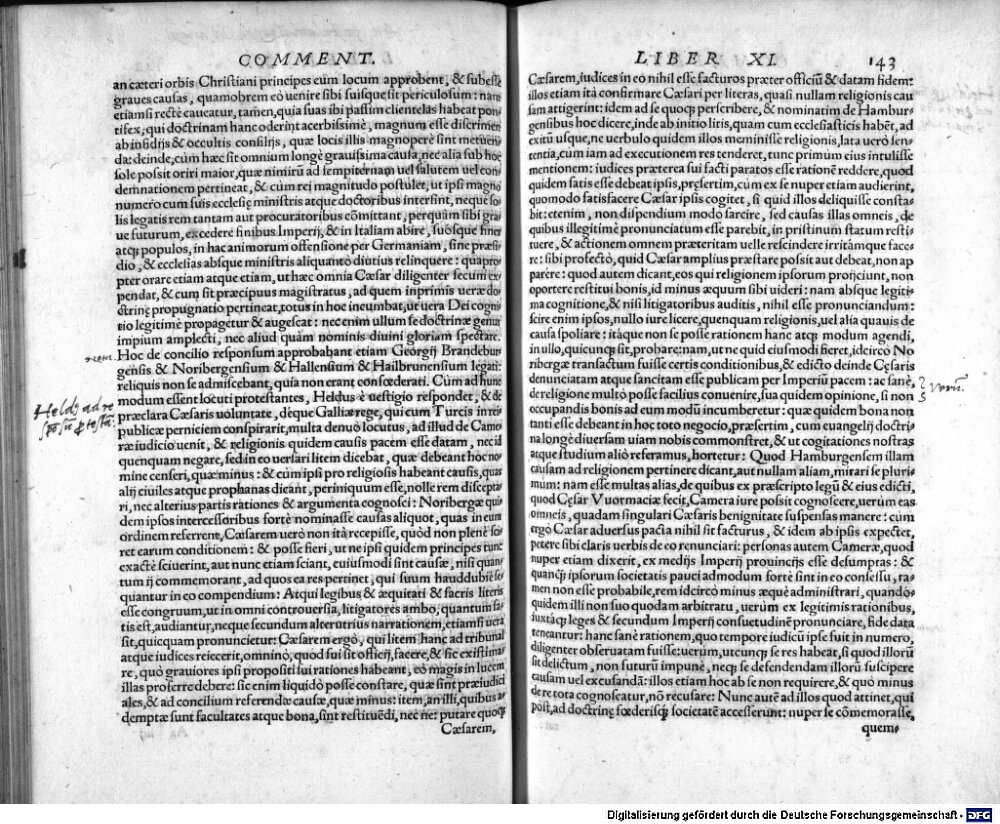 COMMENT.
an cæteri orbis Christiani principes cùm locum approbent, & subesse
graues causas, quamobrem eò uenire sibi suisque sit periculosum: nam
etiamsi rectè caueatur, tamen, quia suas ibi passim clientelas habeat pon-
tifex, qui doctrinam hanc oderint acerbissimè, magnum esse discrimen
ab insidijs & occultis consilijs, quæ locis illis magnopere sint metuen-
da: deinde, cùm hæc sit omnium longè grauissima causa, nec alia sub hoc
sole possit oriri maior, quæ nimirũ ad sempiternam uel salutem uel con-
demnationem pertineat, & cùm rei magnitudo postulet, ut ipsi magno
numero cum suis ecclesię ministris atque doctoribus intersint, neque so-
lis legatis rem tantam aut procuratoribus cõmittant, perquàm sibi gra-
ue futurum, excedere finibus Imperij, & in Italiam abire, suòsque fines
atcq; populos, in hac animorum offensione per Germaniam, sine præsi-
dio, & ecclesias absque ministris aliquanto diutius relinquere: quapro-
pter orare etiam atque etiam, ut hæc omnia Cæsar diligenter secum ex-
pendat, & cum sit præcipuus magistratus, ad quem inprimis ueræ do-
ctrinę propugnatio pertineat, totus in hoc incumbat, ut uera Dei cogni-
tio legitimè propagetur & augescat: nec enim ullum se doctrinæ genus
impium amplecti, nec aliud quàm nominis diuini gloriam spectare.
Hoc de concilio responsum approbabant etiam Georgij Brandebur-
gensis & Noribergensium & Hallensium & Hailbrunensium legati:
reliquis non se admiscebant, quia non erant confœderati. Cùm ad hunc
modum essent locuti protestantes, Heldus è uestigio respondet, & de
præclara Cæsaris uoluntate, déque Galliæ rege, qui cum Turcis in rei-
publicæ perniciem conspirarit, multa denuò locutus, ad illud de Came-
ræ iudicio uenit, & religionis quidem causis pacem esse datam, nec id
quenquam negare, sed in eo uersari litem dicebat, quæ debeant hoc no-
mine censeri, quæ minus: & cùm ipsi pro religiosis habeant causis, quas
alij ciuiles atque prophanas dicant, periniquum esse, nolle rem discepta-
ri, nec alterius partis rationes & argumenta cognosci: Noribergæ qui-
dem ipsos intercessoribus fortè nominasse causas aliquot, quas in eum
ordinem referrent, Cæsarem uerò non ità recepisse, quòd non plenè sci-
ret earum conditionem: & posse fieri, ut ne ipsi quidem principes tunc
exactè sciuerint, aut nunc etiam sciant, cuiusmodi sint causæ, nisi quan-
tum ij commemorant, ad quos ea res pertinet, qui suum hauddubiè se-
quantur in eo compendium: Atqui legibus & æquitati & sacris literis
esse congruum, ut in omni controuersia, litigatores ambo, quantum sa-
tis est, audiantur, neque secundum alterutrius narrationem, etiamsi uera
sit, quicquam pronuncietur: Cæsarem ergò, qui litem hanc ad tribunal
atque iudices reiecerit, omninò, quod sui sit officij, facere, & sic existima-
re, quò grauiores ipsi propositi sui rationes habeant, eò magis in lucem
illas proferre debere: sic enim liquidò posse constare, quæ sint præiudici
ales, & ad concilium referendæ causæ, quæ minus: item, an illi, quibus a-
demptæ sunt facultates atque bona, sint restituẽdi, nec ne: putare quoq;
Cæsarem,
Heldj ad re
LIBER XI. 143
Cæsarem, iudices in eo nihil esse facturos præter officiũ & datam fidem:
illos etiam ità confirmare Cæsari per literas, quasi nullam religionis cau
sam attigerint: idem ad se quoq; perscribere, & nominatim de Hambur-
gensibus hoc dicere, inde ab initio litis, quam cum ecclesiasticis habẽt, ad
exitũ usque, ne uerbulo quidem illos meminisse religionis, lata uerò sen-
tentia, cum iam ad executionem res tenderet, tunc primùm eius intulisse
mentionem: iudices præterea sui facti paratos esse rationẽ reddere, quod
quidem satis esse debeat ipsis, pręsertim, cùm ex se nuper etiam audierint,
quomodo satisfacere Cæsar ipsis cogitet, si quid illos deliquisse consta-
bit: etenim, non dispendium modò sarcire, sed causas illas omneis, de
quibus illegitimè pronunciatum esse parebit, in pristinum statum resti-
tuere, & actionem omnem præteritam uelle rescindere irritámque face-
re: sibi profectò, quid Cæsar amplius præstare possit aut debeat, non ap
parere: quod autem dicant, eos qui religionem ipsorum profiteantur, non
oportere restitui bonis, id minus æquum sibi uideri: nam absque legiti-
ma cognitione, & nisi litigatoribus auditis, nihil esse pronunciandum:
scire enim ipsos, nullo iure licere, quenquam religionis, uel alia quauis de
causa spoliare: itáque non se posse rationem hanc atq; modum agendi,
in ullo, quicunq; sit, probare: nam, ut ne quid eiusmodi fieret, idcirco No
ribergæ transactum fuisse certis conditionibus, & edicto deinde Cęsaris
denunciatam atque sancitam esse publicam per Imperiũ pacem: ac sanè,
de religione multò posse facilius conuenire, sua quidem opinione, si non
occupandis bonis ad eum modũ incumberetur: quæ quidem bona non
tanti esse debeant in hoc toto negocio, præsertim, cum euangelij doctri-
na longè diuersam uiam nobis commonstret, & ut cogitationes nostras
atque studium aliò referamus, hortetur: Quod Hamburgensem illam
causam ad religionem pertinere dicant, aut nullam aliam, mirari se pluri-
mùm: nam esse multas alias, de quibus ex præscripto legũ & eius edicti,
quod Cęsar Vuormaciæ fecit, Camera iure possit cognoscere, uerùm eas
omneis, quadam singulari Cæsaris benignitate suspensas manere: cum
ergò Cæsar aduersus pacta nihil sit facturus, & idem ab ipsis expectet,
petere sibi claris uerbis de eo renunciari: personas autem Cameræ, quod
nuper etiam dixerit, ex medijs Imperij prouincijs esse desumptas: &
quanq; ipsorum societatis pauci admodum fortè sint in eo consessu, ta-
men non esse probabile, rem idcircò minus æquè administrari, quando-
quidem illi non suo quodam arbitratu, uerùm ex legitimis rationibus,
iuxtáq; leges & secundum Imperij consuetudinẽ pronunciare, fide data
teneantur: hanc sanè rationem, quo tempore iudicũ ipse fuit in numero,
diligenter obseruatam fuisse: uerùm, utcunq; se res habeat, si quod illorũ
sit delictum, non futurũ impunè, neq; se defendendam illorũ suscipere
causam uel excusandã: illos etiam hoc ab se non requirere, & quò minus
de re tota cognoscatur, nõ recusare: Nunc autẽ ad illos quod attinet, qui
pòst, ad doctrinę fœderisq; societatẽ accesserunt: nuper se cõmemorasse,
quem-
Digitalisierung gefördert durch die Deutsche Forschungsgemeinschaft - DFG